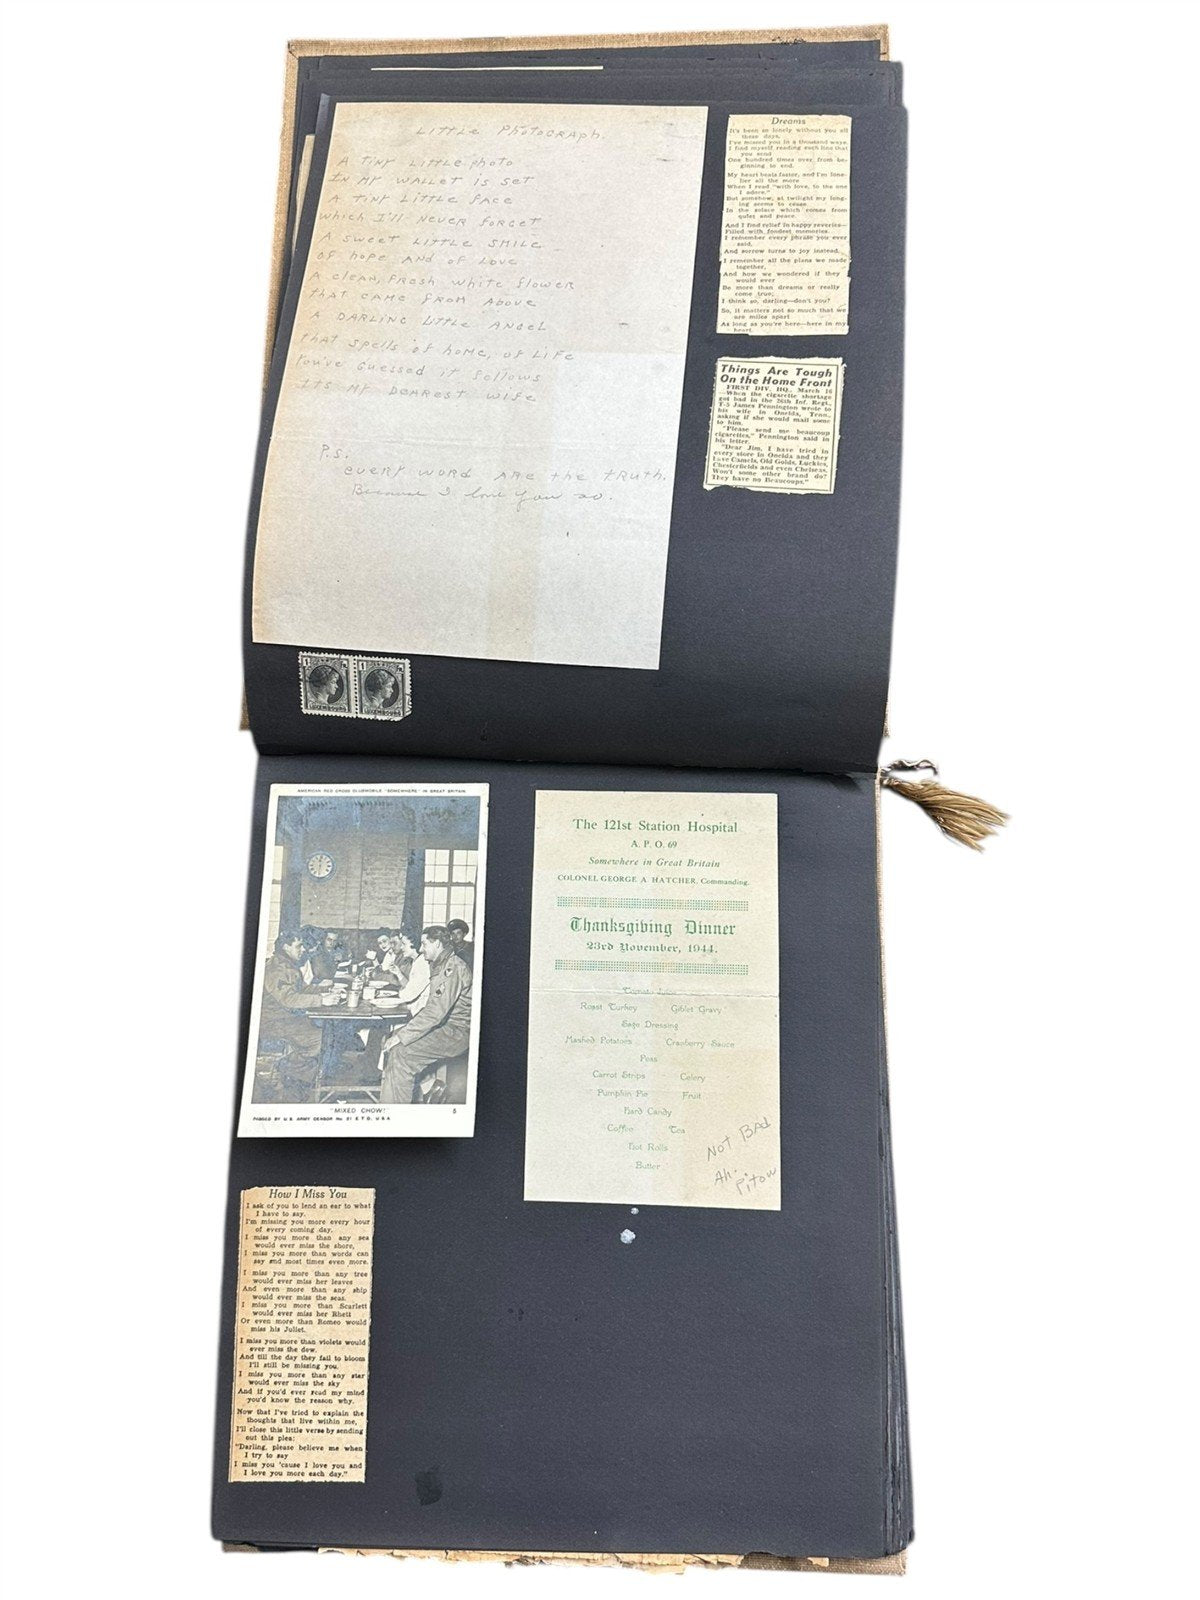 LITTLE PHOTOGRAPH.
A TINY LITTLE PHOTO
IN MY WALLET IS SET
A TINY LITTLE FACE
WHICH I'LL NEVER FORGET
A SWEET LITTLE SMILE
OF HOPE AND OF LOVE
A CLEAN, FRESH WHITE FLOWER
THAT CAME FROM ABOVE
A DARLING LITTLE ANGEL
THAT SPELLS OF HOME, OF LIFE
YOU'VE GUESSED IT FELLOWS
ITS MY DEAREST WIFE
P.S.
EVERY WORD ARE THE TRUTH.
Because I love you so.
Dreams
It's been so lonely without you all
these days,
I've missed you in a thousand ways.
I find myself reading each line that
you send
One hundred times over from be-
ginning to end.
My heart beats faster, and I'm lone-
lier all the more
When I read "with love, to the one
I adore."
But somehow, at twilight my long-
ing seems to cease
In the solace which comes from
quiet and peace.
And I find relief in happy reveries—
Filled with fondest memories.
I remember every phrase you ever
said,
And sorrow turns to joy instead.
I remember all the plans we made
together,
And how we wondered if they
would ever
Be more than dreams or really
come true;
I think so, darling—don't you?
So, it matters not so much that we
are miles apart
As long as you're here—here in my
heart.
Things Are Tough
On the Home Front
FIRST DIV. HQ., March 16
—When the cigarette shortage
got bad in the 26th Inf. Regt.,
T-5 James Pennington wrote to
his wife in Oneida, Tenn.,
asking if she would mail some
to him.
"Please send me beaucoup
cigarettes," Pennington said in
his letter.
"Dear Jim, I have tried in
every store in Oneida and they
have Camels, Old Golds, Luckies,
Chesterfields and even Chelseas.
Won't some other brand do?
They have no Beaucoups."
1 1
LUXEMBOURG LUXEMBOURG
AMERICAN RED CROSS CLUBMOBILE "SOMEWHERE" IN GREAT BRITAIN
"MIXED CHOW" 5
PASSED BY U.S. ARMY CENSOR No. 21 E.T.O. U.S.A
The 121st Station Hospital
A. P. O. 69
Somewhere in Great Britain
COLONEL GEORGE A HATCHER, Commanding.
Thanksgiving Dinner
23rd November, 1944.
Tomato Juice
Roast Turkey Giblet Gravy
Sage Dressing
Mashed Potatoes Cranberry Sauce
Peas
Carrot Strips Celery
Pumpkin Pie Fruit
Hard Candy
Coffee Tea
Hot Rolls
Butter
NOT BAd
Ah.
Pitow
How I Miss You
I ask of you to lend an ear to what
I have to say.
I'm missing you more every hour
of every coming day.
I miss you more than any sea
would ever miss the shore,
I miss you more than words can
say and most times even more.
I miss you more than any tree
would ever miss her leaves
And even more than any ship
would ever miss the seas.
I miss you more than Scarlett
would ever miss her Rhett
Or even more than Romeo would
miss his Juliet.
I miss you more than violets would
ever miss the dew.
And till the day they fail to bloom
I'll still be missing you.
I miss you more than any star
would ever miss the sky
And if you'd ever read my mind
you'd know the reason why.
Now that I've tried to explain the
thoughts that live within me,
I'll close this little verse by sending
out this plea:
"Darling, please believe me when
I try to say
I miss you 'cause I love you and
I love you more each day."